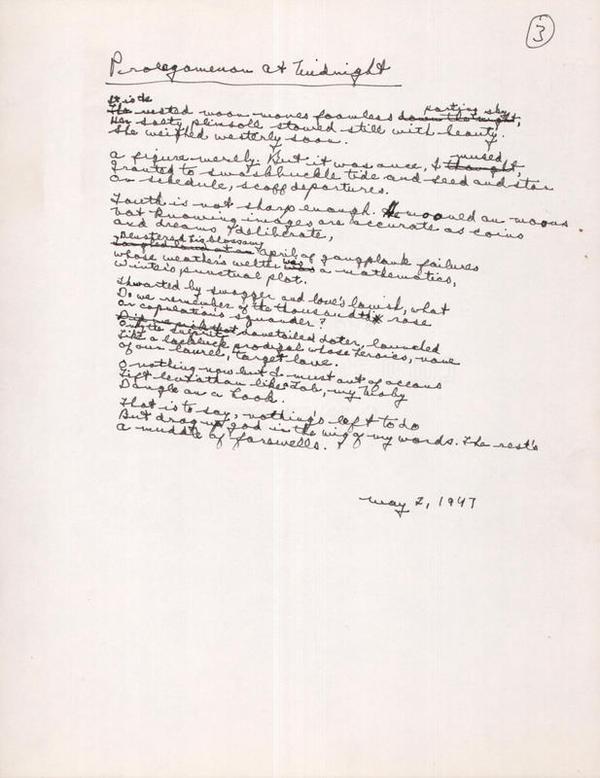 3
Prolegomenon at Midnight
parting sky,
The rusted moon moves foamless down the night,
Her salty plimsoll stowed still with beauty.
She weighed westerly soon.
mused,
A figure merely. But it was once, I thought,
to swashbuckle tide and seed and star
on schedule, scoff departures.
Youth is not sharp enough. He mooned on moons
but knowing images are accurate as coins
and dreams deliberate,
April of gangplank failures
whose weather's welter was a mathematics,
Winter's punctual plot.
Thwarted by swagger and love's lavish, what
Do we remember of the thousandth rose
or copulation's squander?
dovetailed later, launched
Like a lackluck prodigal whose heroics, none
of our laurel, target love.
O nothing now but I must out of oceans
Lift leviathan like Job, my Moby
Dangle on a hook.
That is to say, nothing's left to do
But drag up god in the wig of my words. The rest's
a muddle of farewells.
May 2, 1947